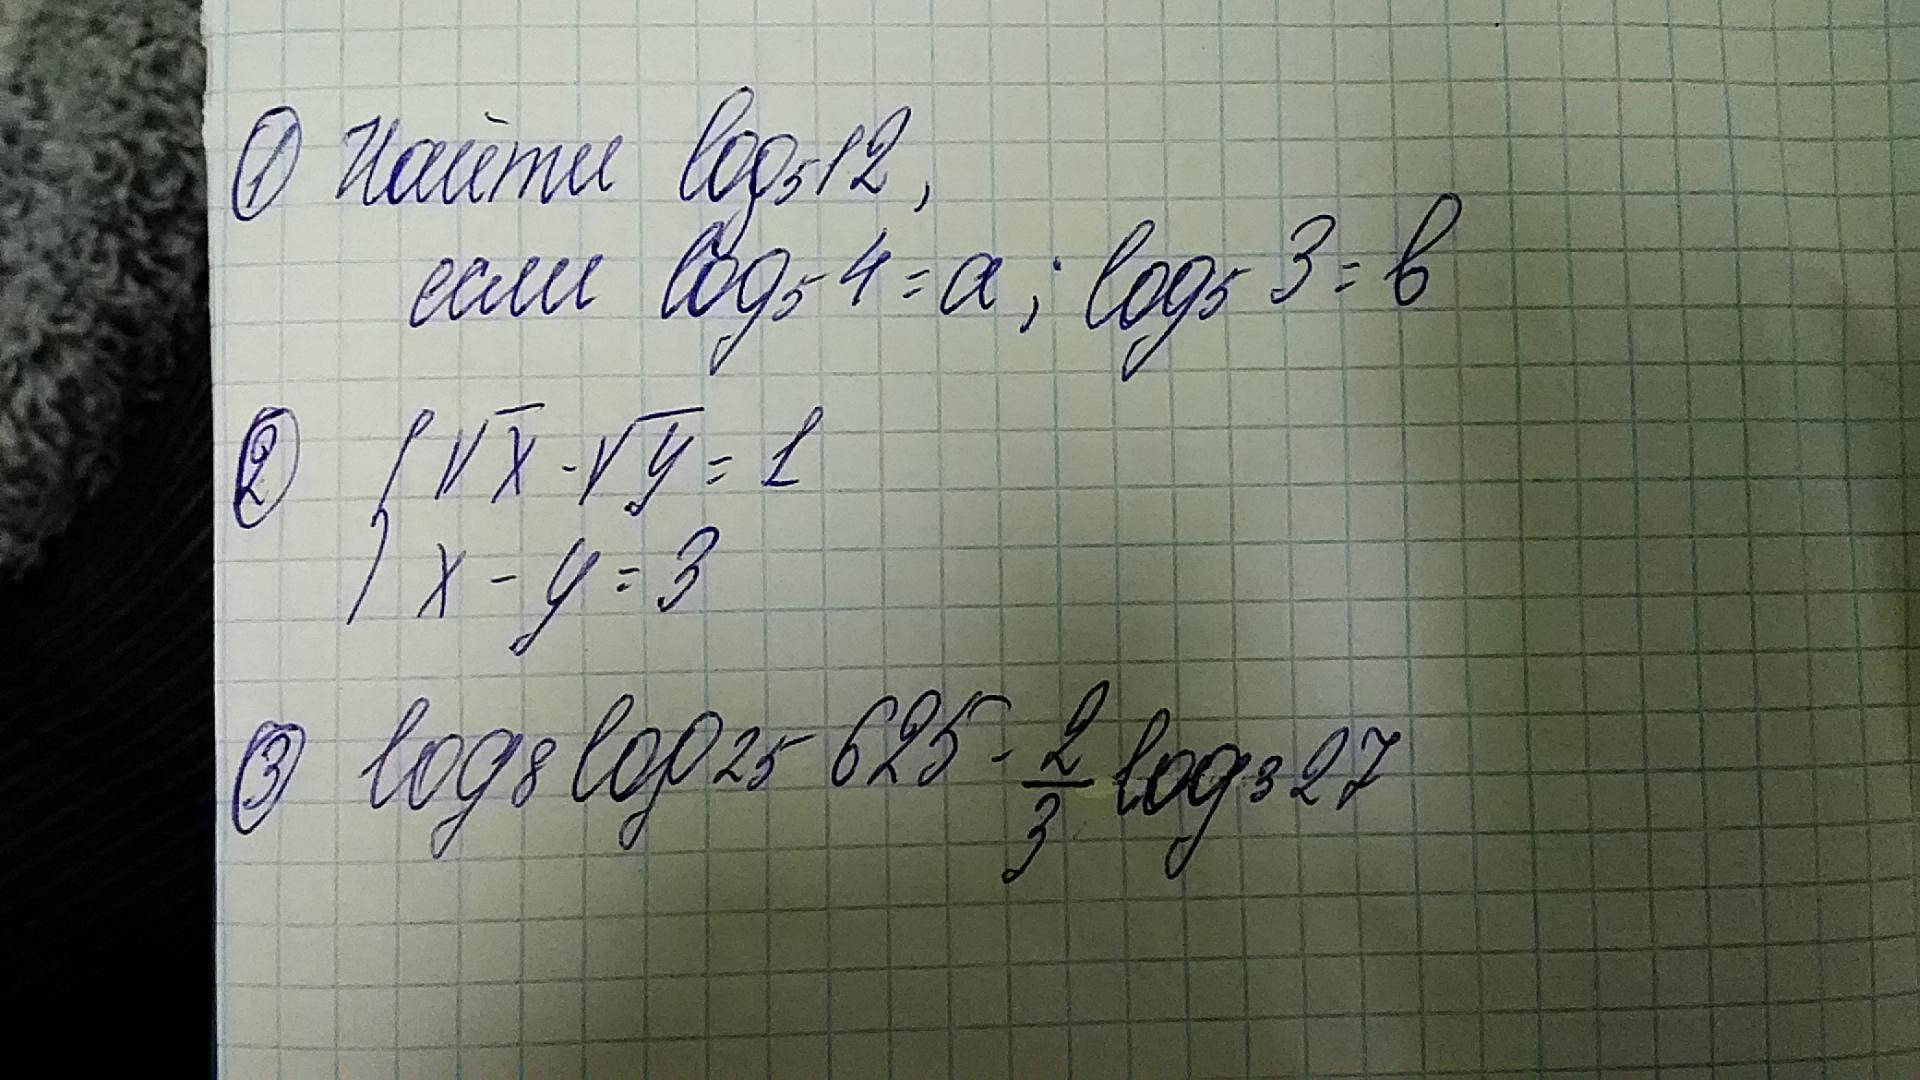 ① Найти log₅12,
если log₅4 = a; log₅3 = b
② { √x - √y = 1
x - y = 3
③ log₈ log₂₅ 625 - 2/3 log₃ 27